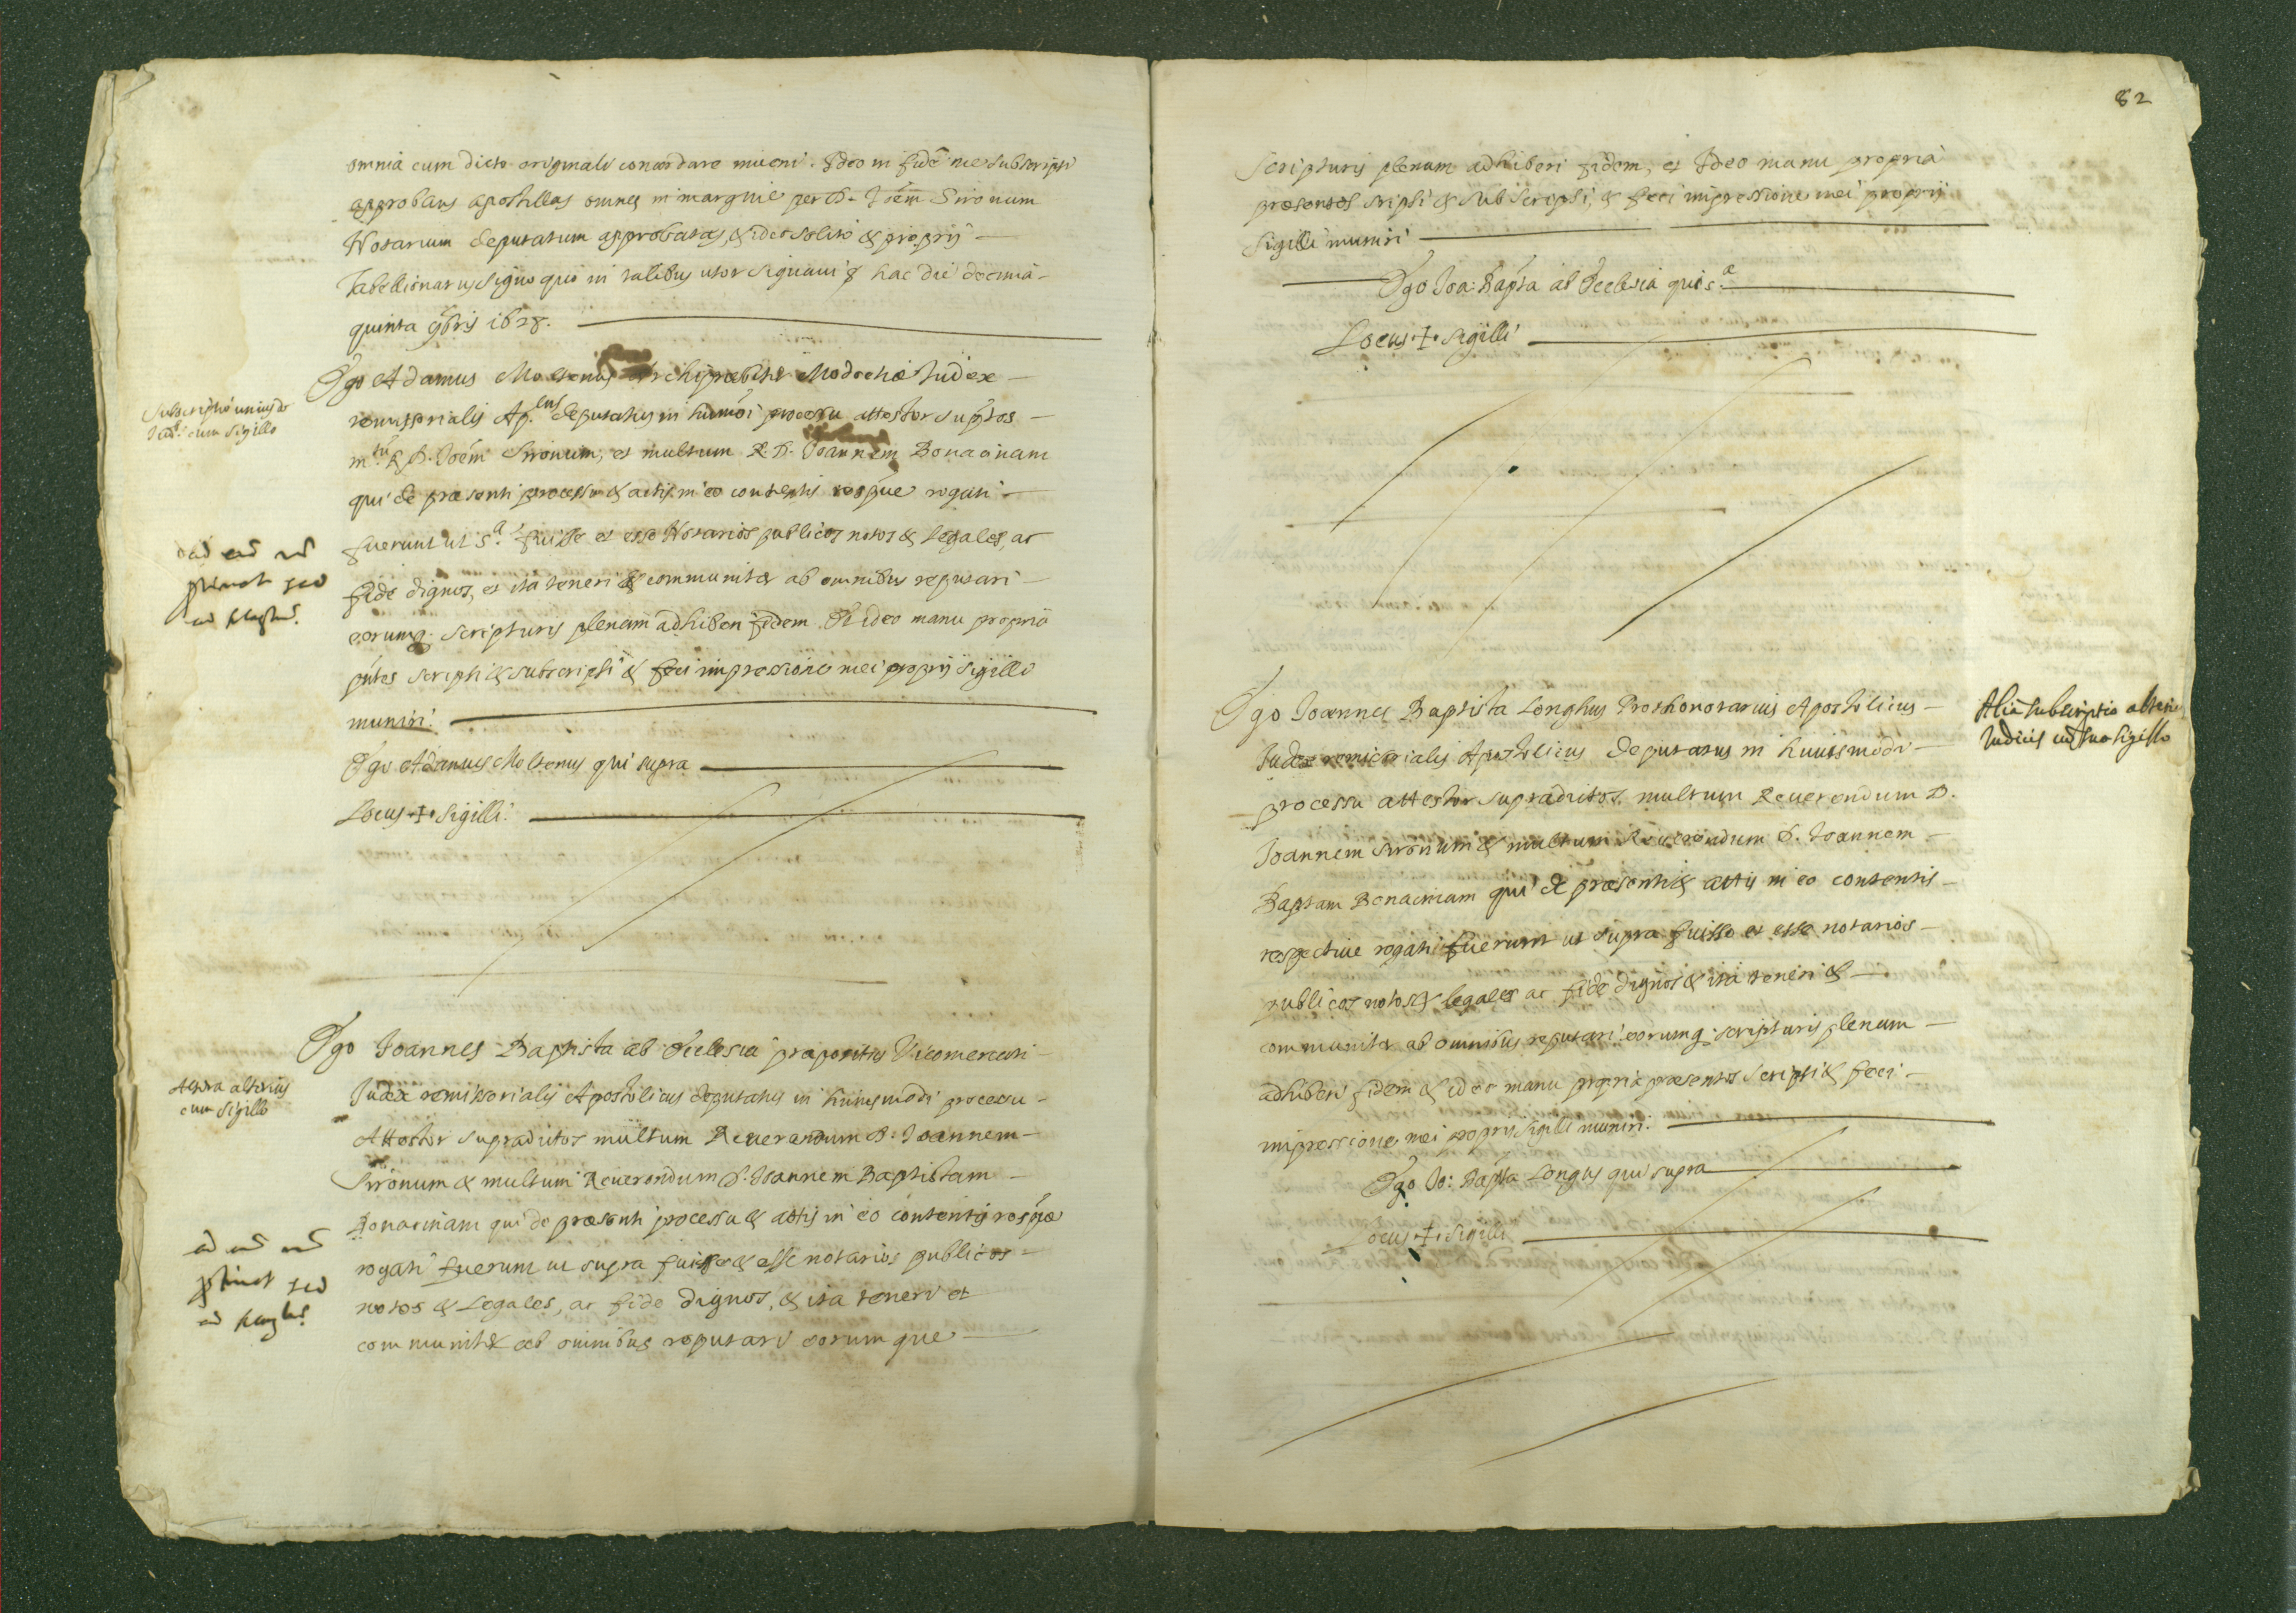 omnia cum dicto originali concordare inueni. Ideo in fidē me subscripsi
approbans apostillas omnes in margine per D. Joēm Sironum
Notarium deputatum approbatas, & ideo solito & proprij
Tabellionatus signo quo in talibus utor signaui hac die decima
quinta 9bris 1628.
Ego Adamus Moltenus Archipresbiter Modoetiæ Judex
remissorialis Ap.cus deputatus in hūmōi processu attestor supṫos
m.tū R. D. Joēm Sironum, et multum R. D. Joannem Bonacinam
qui de præsenti processu & actis in eo contentis respūe rogati
fuerunt ut s.a fuisse et esse Notarios publicos notos & legales, ac
fide dignos, et ita teneri & communiter ab omnibus reputari
eorumq. scripturis plenam adhiberi fidem. Et ideo manu propria
pūtes scripsi & subscripsi & feci impressione mei proprij sigilli
muniri.
Ego Adamus Moltenus qui supra
Locus + Sigilli.
Subscriptio unius de
Iud. cum sigillo
Ego Joannes Baptista ab Ecclesia præpositus Vicomercati
Judex remissorialis Apostolicus deputatus in huiusmodi processu
Attestor supradictos multum Reuerendum D. Joannem
Sironum & multum Reuerendum D. Joannem Baptistam
Bonacinam qui de præsenti processu & actis in eo contentis respūe
rogati fuerunt ut supra fuisse & esse notarios publicos
notos & Legales, ac fide dignos, & ita teneri et
communiter ab omnibus reputari eorumque
Altera alterius
cum sigillo
82
scripturis plenam adhiberi fidem, et Ideo manu propria
præsentes scripsi & subscripsi, & feci impressione mei proprij
sigilli muniri
Ego Joa: Bapta ab Ecclesia qui s.a
Locus + Sigilli
Ego Joannes Baptista Longhus Prothonotarius Apostolicus
Judex remissorialis Apostolicus deputatus in huiusmodi
processu attestor supradictos multum Reuerendum D.
Joannem Sironum & multum Reuerendum D. Joannem
Baptam Bonacinam qui de præsenti & actis in eo contentis
respectiue rogati fuerunt ut supra fuisse et esse notarios
publicos notos & legales ac fide dignos & ita teneri &
communiter ab omnibus reputari eorumq. scripturis plenam
adhiberi fidem & ideo manu propria præsentes scripsi & feci
impressione mei proprij sigilli muniri.
Ego Jo: Bapta Longus qui supra
Locus + Sigilli
Alia subscriptio alterius
Iudicis cū suo sigillo